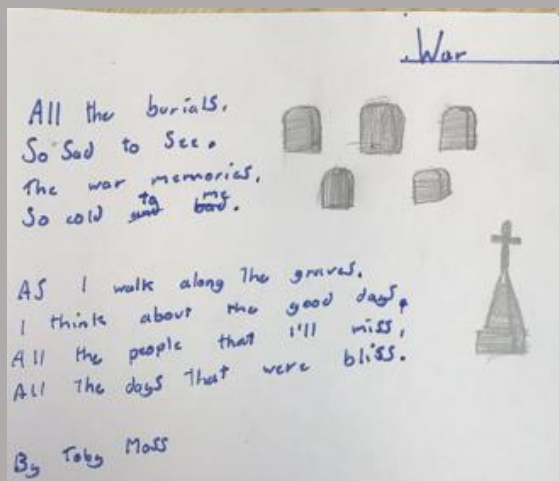 War
All the burials,
So sad to see.
The war memories,
So cold to me.
As I walk along the graves,
I think about the good days,
All the people that I'll miss,
All the days that were bliss.
By Toby Moss